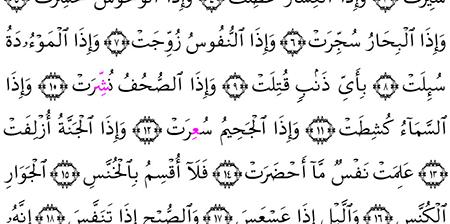 سُيِّرَتْ ٣ وَإِذَا ٱلْعِشَارُ عُطِّلَتْ ٤ وَإِذَا ٱلْوُحُوشُ حُشِرَتْ ٥
وَإِذَا ٱلْبِحَارُ سُجِّرَتْ ٦ وَإِذَا ٱلنُّفُوسُ زُوِّجَتْ ٧ وَإِذَا ٱلْمَوْءُۥدَةُ
سُئِلَتْ ٨ بِأَيِّ ذَنۢبٖ قُتِلَتْ ٩ وَإِذَا ٱلصُّحُفُ نُشِّرَتْ ١٠ وَإِذَا
ٱلسَّمَآءُ كُشِطَتْ ١١ وَإِذَا ٱلْجَحِيمُ سُعِرَتْ ١٢ وَإِذَا ٱلْجَنَّةُ أُزْلِفَتْ
١٣ عَلِمَتْ نَفْسٞ مَّآ أَحْضَرَتْ ١٤ فَلَآ أُقْسِمُ بِٱلْخُنَّسِ ١٥ ٱلْجَوَارِ
ٱلْكُنَّسِ ١٦ وَٱلَّيْلِ إِذَا عَسْعَسَ ١٧ وَٱلصُّبْحِ إِذَا تَنَفَّسَ ١٨ إِنَّهُۥ